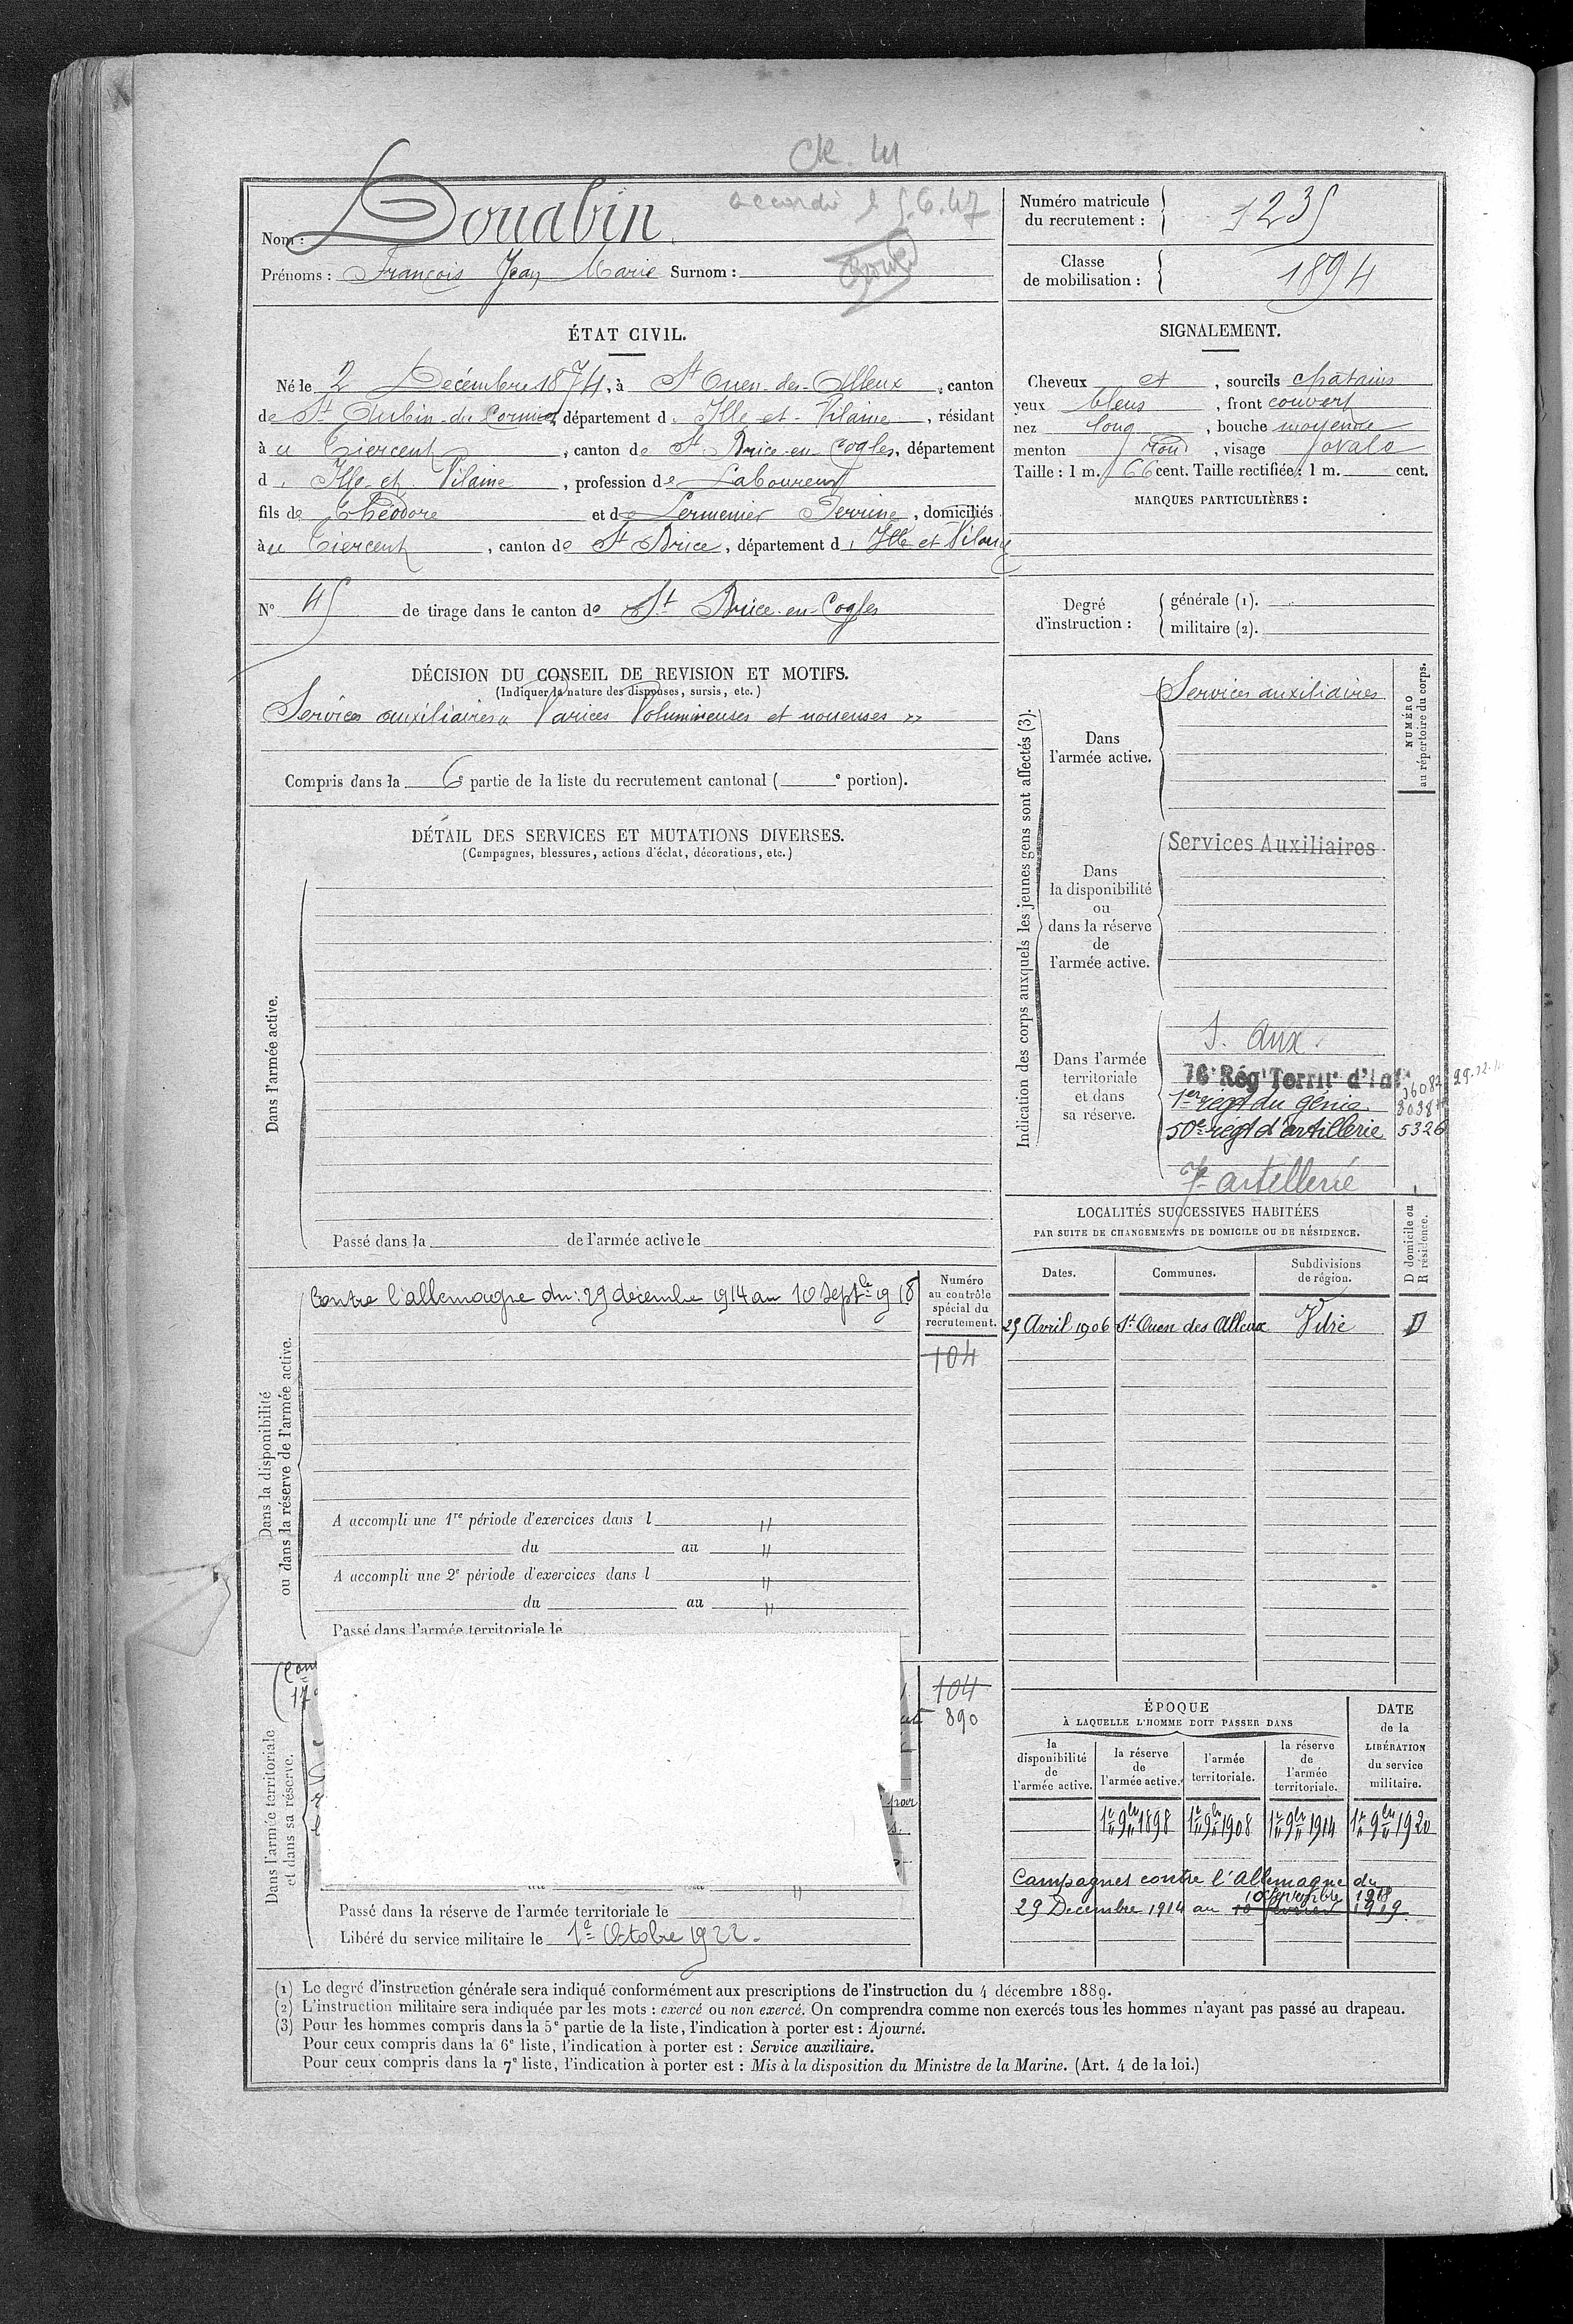 CR. 41
accordé le 5.6.47
Nom : Douabin
Prénoms : François Jean Marie Surnom :
Numéro matricule du recrutement : 1235
Classe de mobilisation : 1894
ÉTAT CIVIL.
Né le 2 Décembre 1874, à St Ouen-des-Alleux, canton
de St Aubin-du-Cormier, département d. Ille-et-Vilaine, résidant
à u Tiercent, canton de St Brice-en-Cogles, département
d. Ille-et-Vilaine, profession de Laboureur
fils de Théodore et de Lermenier Perrine, domiciliés
à u Tiercent, canton de St Brice, département d. Ille et Vilaine
N° 45 de tirage dans le canton de St Brice-en-Cogles
SIGNALEMENT.
Cheveux et, sourcils chatains
yeux bleus, front couvert
nez long, bouche moyenne
menton rond, visage ovale
Taille : 1 m. 66 cent. Taille rectifiée : 1 m. cent.
MARQUES PARTICULIÈRES :
Degré d'instruction : générale (1).
militaire (2).
DÉCISION DU CONSEIL DE REVISION ET MOTIFS.
(Indiquer la nature des dispenses, sursis, etc.)
Services auxiliaires « Varices Volumineuses et noueuses »
Compris dans la 6e partie de la liste du recrutement cantonal ( e portion).
DÉTAIL DES SERVICES ET MUTATIONS DIVERSES.
(Campagnes, blessures, actions d'éclat, décorations, etc.)
Dans l'armée active.
Passé dans la de l'armée active le
Indication des corps auxquels les jeunes gens sont affectés (3).
NUMÉRO au répertoire du corps.
Dans l'armée active.
Services auxiliaires
Dans la disponibilité ou dans la réserve de l'armée active.
Services Auxiliaires
Dans l'armée territoriale et dans sa réserve.
S. aux.
76e Régt Territl d'Inf
1er régt du génie
50e régt d'artillerie 5326
7e artillerie
LOCALITÉS SUCCESSIVES HABITÉES
PAR SUITE DE CHANGEMENTS DE DOMICILE OU DE RÉSIDENCE.
Dates. Communes. Subdivisions de région. D domicile ou R résidence.
29 Avril 1906 St Ouen des Alleux Vitré D
Dans la disponibilité ou dans la réserve de l'armée active.
Contre l'allemagne du : 29 décembre 1914 au 10 Septbre 1918
Numéro au contrôle spécial du recrutement.
104
A accompli une 1re période d'exercices dans l "
du au "
A accompli une 2e période d'exercices dans l "
du au "
Passé dans l'armée territoriale le
Dans l'armée territoriale et dans sa réserve.
104
890
par
Passé dans la réserve de l'armée territoriale le
Libéré du service militaire le 1er Octobre 1922.
ÉPOQUE
À LAQUELLE L'HOMME DOIT PASSER DANS
la disponibilité de l'armée active.
la réserve de l'armée active.
l'armée territoriale.
la réserve de l'armée territoriale.
DATE de la LIBÉRATION du service militaire.
1er 9bre 1898 1er 9bre 1908 1er 9bre 1914 1er 9bre 1920
Campagnes contre l'Allemagne du
10 septembre 1918
29 Decembre 1914 au 10 février 1919.
(1) Le degré d'instruction générale sera indiqué conformément aux prescriptions de l'instruction du 4 décembre 1889.
(2) L'instruction militaire sera indiquée par les mots : exercé ou non exercé. On comprendra comme non exercés tous les hommes n'ayant pas passé au drapeau.
(3) Pour les hommes compris dans la 5e partie de la liste, l'indication à porter est : Ajourné.
Pour ceux compris dans la 6e liste, l'indication à porter est : Service auxiliaire.
Pour ceux compris dans la 7e liste, l'indication à porter est : Mis à la disposition du Ministre de la Marine. (Art. 4 de la loi.)